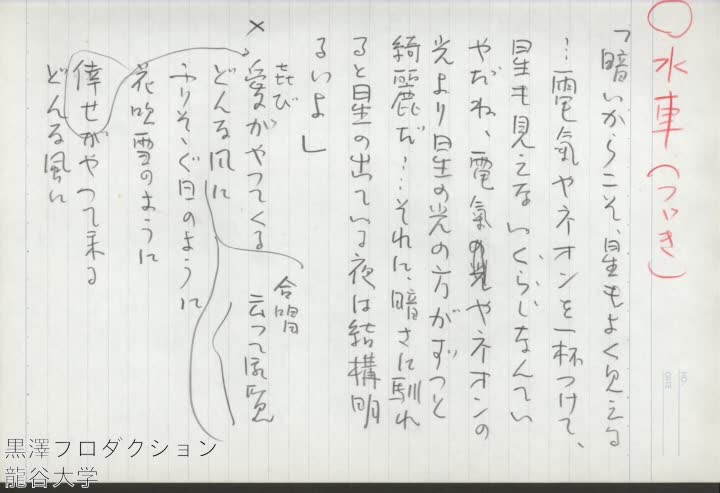 ○水車（つゞき）
「暗いからこそ、星もよく見える
…電氣やネオンを一杯つけて、
星も見えないくらしなんてい
やだね、電氣の光やネオンの
光より星の光の方がずつと
綺麗だ…それに、暗さに馴れ
ると星の出ている夜は結構明
るいよ」
×
喜び
愛がやつてくる
合唱
どんな風に
ふりそゝぐ日のように
花吹雪のように
倖せがやつて来る
どんな風に
黒澤プロダクション
龍谷大学